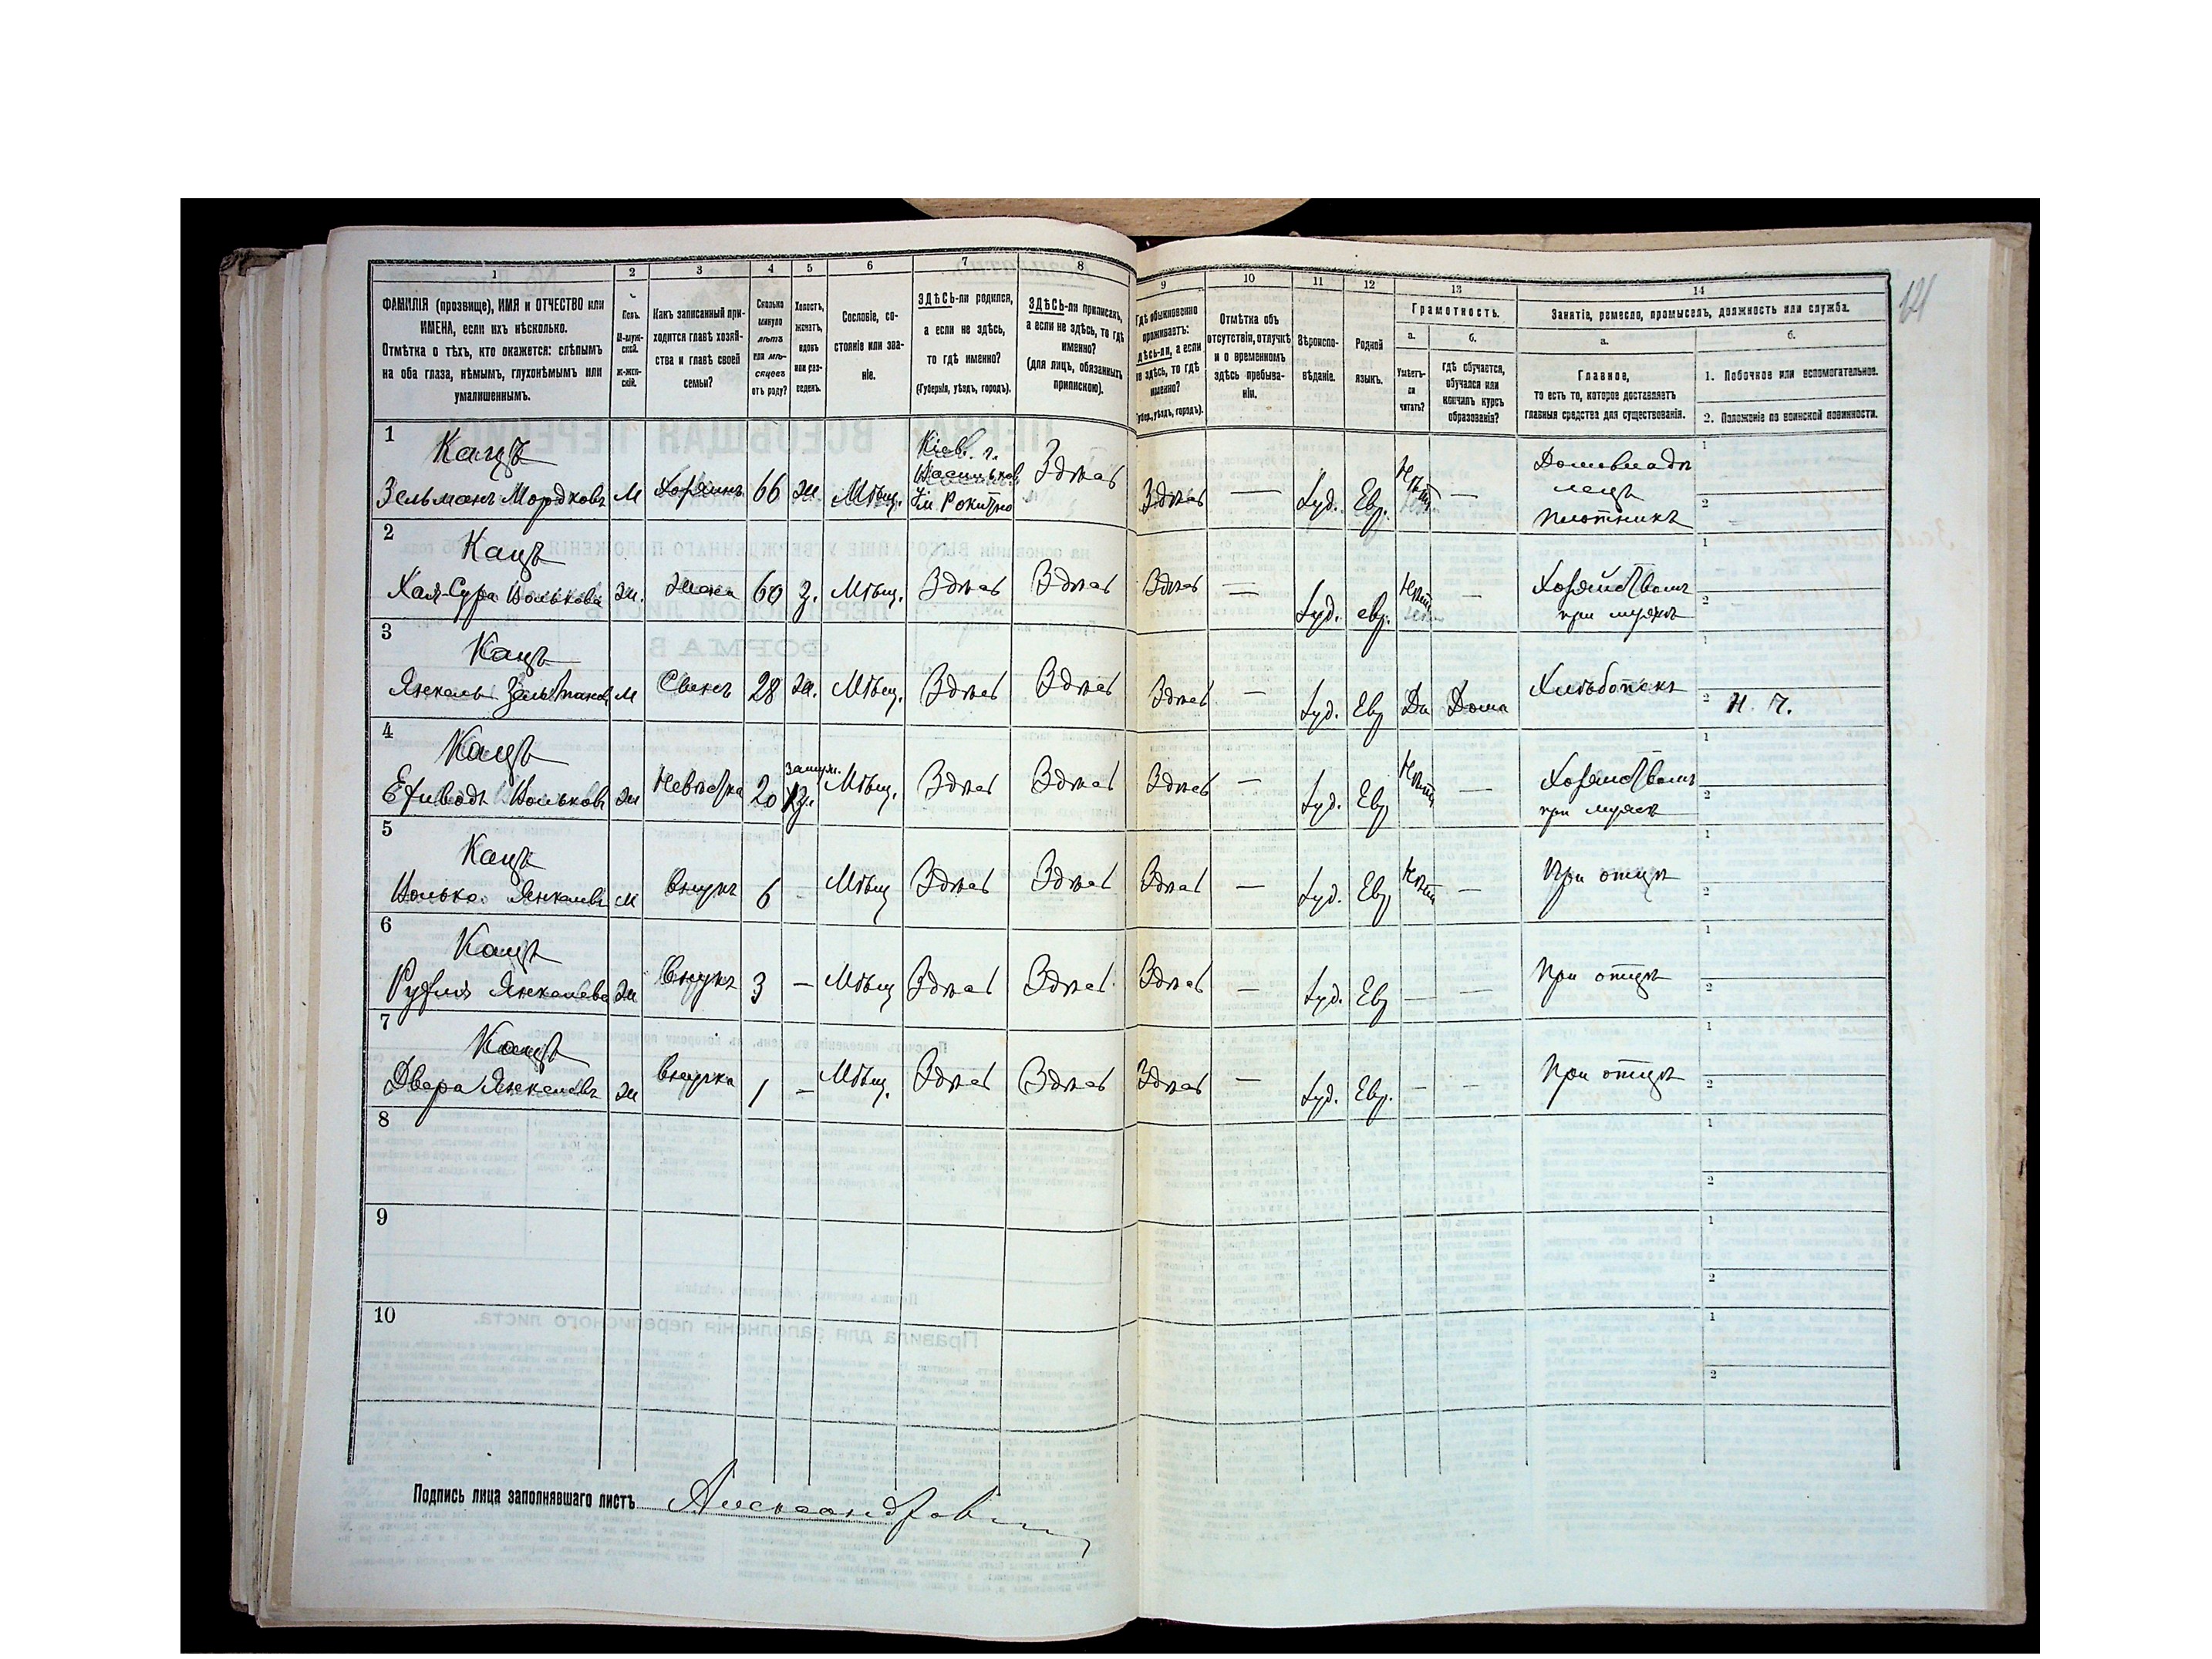 1 2 3 4 5 6 7 8 9 10 11 12 13 14
ФАМИЛІЯ (прозвище), ИМЯ и ОТЧЕСТВО или
ИМЕНА, если ихъ нѣсколько.
Отмѣтка о тѣхъ, кто окажется: слѣпымъ
на оба глаза, нѣмымъ, глухонѣмымъ или
умалишеннымъ.
Полъ.
М-муж-
ской.
ж-жен-
скій.
Какъ записанный при-
ходится главѣ хозяй-
ства и главѣ своей
семьи?
Сколько
минуло
лѣтъ
или мѣ-
сяцевъ
отъ роду?
Холостъ,
женатъ,
вдовъ
или раз-
веденъ.
Сословіе, со-
стояніе или зва-
ніе.
ЗДѢСЬ-ли родился,
а если не здѣсь,
то гдѣ именно?
(Губернія, уѣздъ, городъ).
ЗДѢСЬ-ли приписанъ,
а если не здѣсь, то гдѣ
именно?
(для лицъ, обязанныхъ
припискою).
Гдѣ обыкновенно
проживаетъ:
здѣсь-ли, а если
не здѣсь, то гдѣ
именно?
(Губер., уѣздъ, городъ).
Отмѣтка объ
отсутствіи, отлучкѣ
и о временномъ
здѣсь пребыва-
ніи.
Вѣроиспо-
вѣданіе.
Родной
языкъ.
Грамотность.
а.
Умѣетъ-
ли
читать?
б.
гдѣ обучается,
обучался или
кончилъ курсъ
образованія?
Занятіе, ремесло, промыселъ, должность или служба.
а.
Главное,
то есть то, которое доставляетъ
главныя средства для существованія.
б.
1. Побочное или вспомогательное.
2. Положеніе по воинской повинности.
121
1 Кацъ
Зельманъ Мордковъ М Хозяинъ 66 ж Мѣщ. Кіев. г. Васильков. у. м Рокитно Здѣсь Здѣсь — Іуд. Евр. Нѣтъ — Домовладѣлецъ Плотникъ
2 Кацъ
Хая-Сура Волькова ж. Жена 60 з. Мѣщ. Здѣсь Здѣсь Здѣсь — Іуд. евр. Нѣтъ — Хозяйствомъ при мужѣ
3 Кацъ
Янкель Зельманов М Сынъ 28 ж. Мѣщ. Здѣсь Здѣсь Здѣсь — Іуд. Евр Да Дома Хлѣбопекъ Н. Ч.
4 Кацъ
Вольков ж Невѣстка 20 замуж. Мѣщ. Здѣсь Здѣсь Здѣсь — Іуд. Евр Нѣтъ — Хозяйствомъ при мужѣ
5 Кацъ
Волько Янкелев М Внукъ 6 - Мѣщ Здѣсь Здѣсь Здѣсь — Іуд. Евр Нѣтъ — При отцѣ
6 Кацъ
Янкелева ж Внукъ 3 — Мѣщ Здѣсь Здѣсь Здѣсь — Іуд. Евр — — При отцѣ
7 Кацъ
Двера Янкелев ж Внучка 1 — Мѣщ. Здѣсь Здѣсь Здѣсь — Іуд. Евр. — — При отцѣ
8
9
10
Подпись лица заполнявшаго листъ